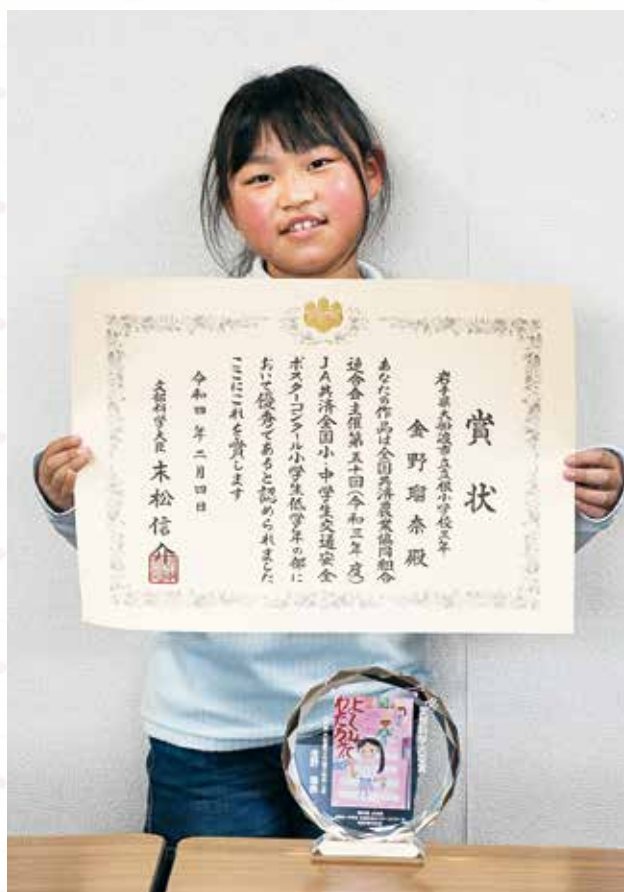 賞状
岩手県大船渡市立立根小学校三年
金野瑠奈殿
あなたの作品は全国共済農業協同組合
連合会主催第五十回(令和三年度)
JA共済全国小・中学生交通安全
ポスターコンクール小学生低学年の部に
おいて優秀であると認められました
ここにこれを賞します
令和四年二月四日
文部科学大臣 末松信介
よくみて
わたろう